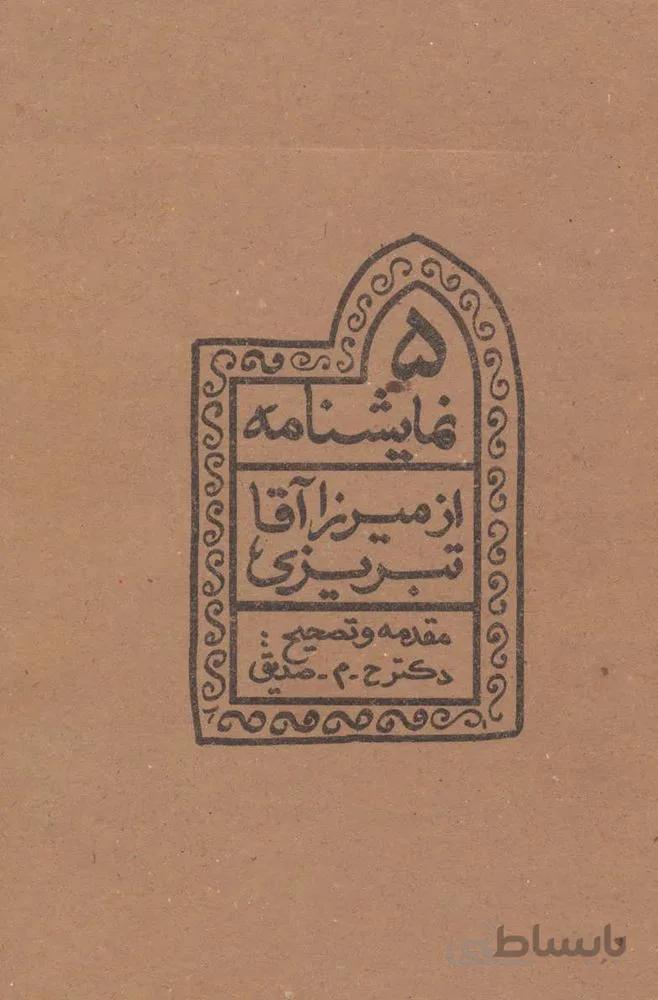 ۵
نمایشنامه
از میرزا آقا
تبریزی
مقدمه و تصحیح :
دکتر ح - م - صدیق
بابساط